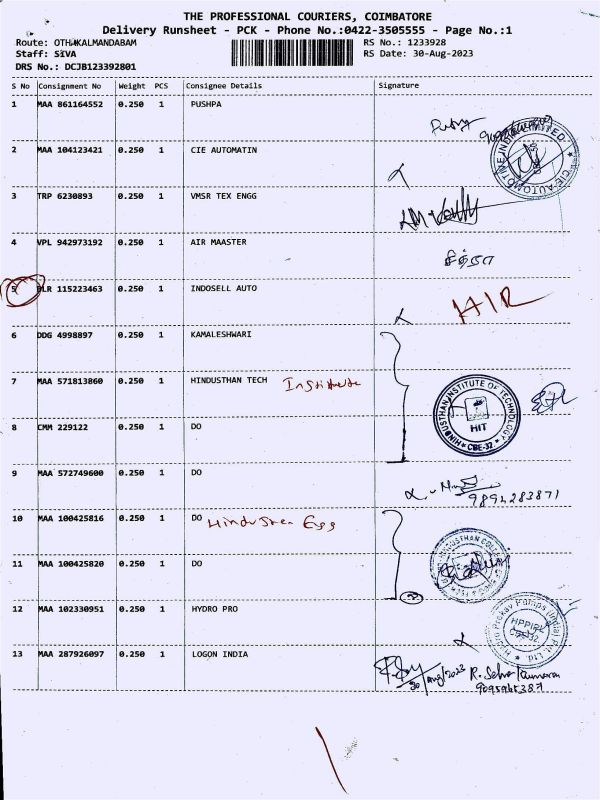 THE PROFESSIONAL COURIERS, COIMBATORE
Delivery Runsheet - PCK - Phone No.:0422-3505555 - Page No.:1
Route: OTHAKALMANDABAM RS No.: 1233928
Staff: SIVA RS Date: 30-Aug-2023
DRS No.: DCJB123392801
S No Consignment No Weight PCS Consignee Details Signature
1 MAA 861164552 0.250 1 PUSHPA
2 MAA 104123421 0.250 1 CIE AUTOMATIN
CIE AUTOMOTIVE INDIA LIMITED
3 TRP 6230893 0.250 1 VMSR TEX ENGG
4 VPL 942973192 0.250 1 AIR MAASTER
சித்ரா
5 BLR 115223463 0.250 1 INDOSELL AUTO
H/R
6 DDG 4998897 0.250 1 KAMALESHWARI
7 MAA 571813860 0.250 1 HINDUSTHAN TECH Institute
HINDUSTHAN INSTITUTE OF TECHNOLOGY
HIT
* CBE-32 *
8 CMM 229122 0.250 1 DO
9 MAA 572749600 0.250 1 DO
9894283871
10 MAA 100425816 0.250 1 DO Hindusthan Egg
11 MAA 100425820 0.250 1 DO
12 MAA 102330951 0.250 1 HYDRO PRO
Hydro Prokav Pumps (India) Pvt. Ltd.
HPPIPL
CBE-32
13 MAA 287926097 0.250 1 LOGON INDIA
30/Aug/2023